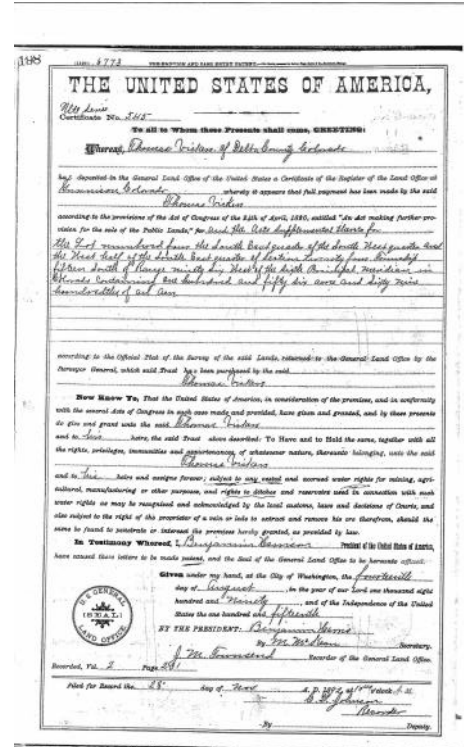 198
THE UNITED STATES OF AMERICA,
Certificate No. 545
To all to Whom these Presents shall come, GREETING:
Whereas, Thomas Vickers of Delta County Colorado
has deposited in the General Land Office of the United States a Certificate of the Register of the Land Office at
Gunnison Colorado whereby it appears that full payment has been made by the said
Thomas Vickers
according to the provisions of the Act of Congress of the 24th of April, 1820, entitled "An Act making further pro-
vision for the sale of the Public Lands," and the Acts Supplemental thereto for
the Lot numbered four the South East quarter of the South West quarter and
the West half of the South East quarter of Section twenty four Township
fifteen South of Range ninety six West of the Sixth Principal Meridian in
Colorado Containing one hundred and fifty six acres and sixty nine
hundredths of an acre
according to the Official Plat of the Survey of the said Lands, returned to the General Land Office by the
Surveyor General, which said Tract has been purchased by the said
Thomas Vickers
Now Know Ye, That the United States of America, in consideration of the premises, and in conformity
with the several Acts of Congress in such case made and provided, have given and granted, and by these presents
do give and grant unto the said Thomas Vickers
and to his heirs, the said Tract above described: To Have and to Hold the same, together with all
the rights, privileges, immunities and appurtenances, of whatsoever nature, thereunto belonging, unto the said
Thomas Vickers
and to his heirs and assigns forever; subject to any vested and accrued water rights for mining, agri-
cultural, manufacturing or other purposes, and rights to ditches and reservoirs used in connection with such
water rights as may be recognized and acknowledged by the local customs, laws and decisions of Courts, and
also subject to the right of the proprietor of a vein or lode to extract and remove his ore therefrom, should the
same be found to penetrate or intersect the premises hereby granted, as provided by law.
In Testimony Whereof, I, Benjamin Harrison President of the United States of America,
have caused these letters to be made patent, and the Seal of the General Land Office to be hereunto affixed.
Given under my hand, at the City of Washington, the fourteenth
day of August, in the year of our Lord one thousand eight
hundred and Ninety, and of the Independence of the United
States the one hundred and fifteenth
U.S. GENERAL LAND OFFICE
(SEAL)
BY THE PRESIDENT: Benjamin Harrison
By M. McKean Secretary.
J. M. Townsend Recorder of the General Land Office.
Recorded, Vol. 2 Page 231
Filed for Record the 28 day of Nov A. D. 1892, at o'clock M.
Recorder
By Deputy.